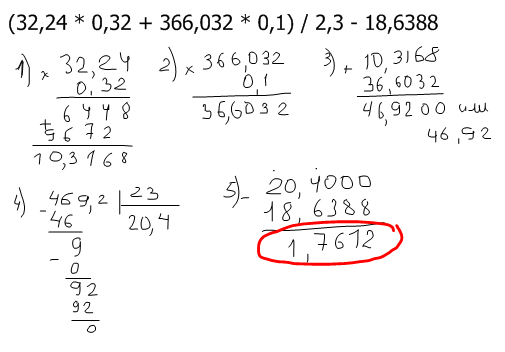 (32,24 * 0,32 + 366,032 * 0,1) / 2,3 - 18,6388
1) × 32,24
0,32
6448
+ 9672
10,3168
2) × 366,032
0,1
36,6032
3) + 10,3168
36,6032
46,9200 или
46,92
4) - 469,2 | 23
46 20,4
9
- 0
92
92
0
5) - 20,4000
18,6388
1,7612